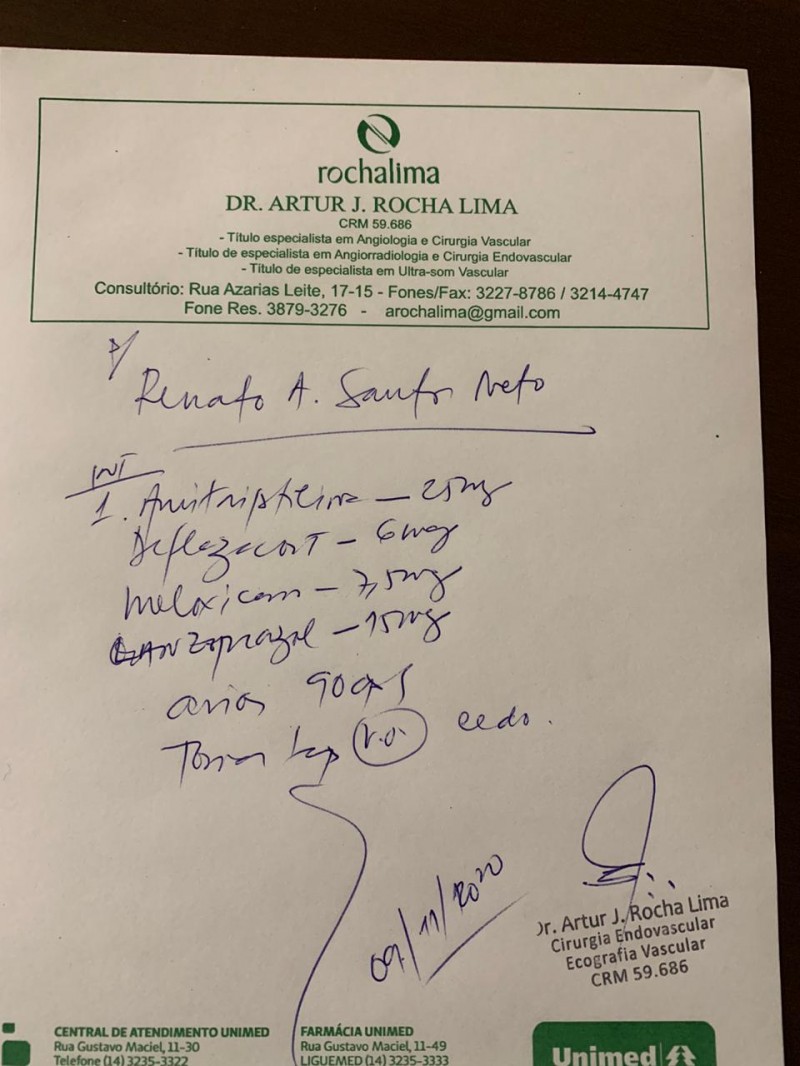 rochalima
DR. ARTUR J. ROCHA LIMA
CRM 59.686
- Título especialista em Angiologia e Cirurgia Vascular
- Título de especialista em Angiorradiologia e Cirurgia Endovascular
- Título de especialista em Ultra-som Vascular
Consultório: Rua Azarias Leite, 17-15 - Fones/Fax: 3227-8786 / 3214-4747
Fone Res. 3879-3276 - arochalima@gmail.com
P/
Renato A. Santos Neto
INT
1. Amitriptilina — 25mg
Deflazacort - 6mg
Meloxicam - 7,5mg
LANZoprazol - 15mg
aviar 90cps
Tomar 1cp V.O. cedo.
09/11/2020
Dr. Artur J. Rocha Lima
Cirurgia Endovascular
Ecografia Vascular
CRM 59.686
CENTRAL DE ATENDIMENTO UNIMED
Rua Gustavo Maciel, 11-30
Telefone (14) 3235-3322
FARMÁCIA UNIMED
Rua Gustavo Maciel, 11-49
LIGUEMED (14) 3235-3333
Unimed